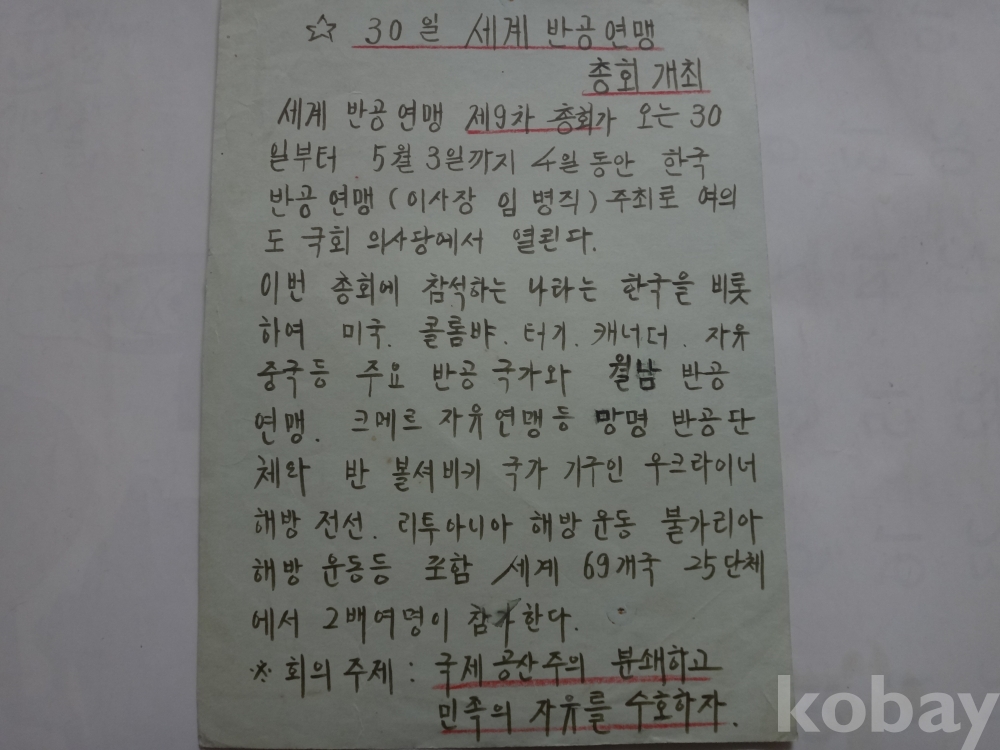 ☆ 30일 세계 반공연맹
총회 개최
세계 반공연맹 제9차 총회가 오는 30
일부터 5월 3일까지 4일 동안 한국
반공 연맹 (이사장 임 병직) 주최로 여의
도 국회 의사당에서 열린다.
이번 총회에 참석하는 나라는 한국을 비롯
하여 미국. 콜롬뱌. 터기. 캐너더. 자유
중국등 주요 반공 국가와 월남 반공
연맹. 크메르 자유연맹등 망명 반공단
체와 반 볼셔비키 국가 기구인 우크라이너
해방 전선. 리투아니아 해방운동 불가리아
해방 운동등 포함 세계 69개국 25단체
에서 2백여명이 참가한다.
※ 회의 주제 : 국제 공산주의 분쇄하고
민족의 자유를 수호하자.
kobay